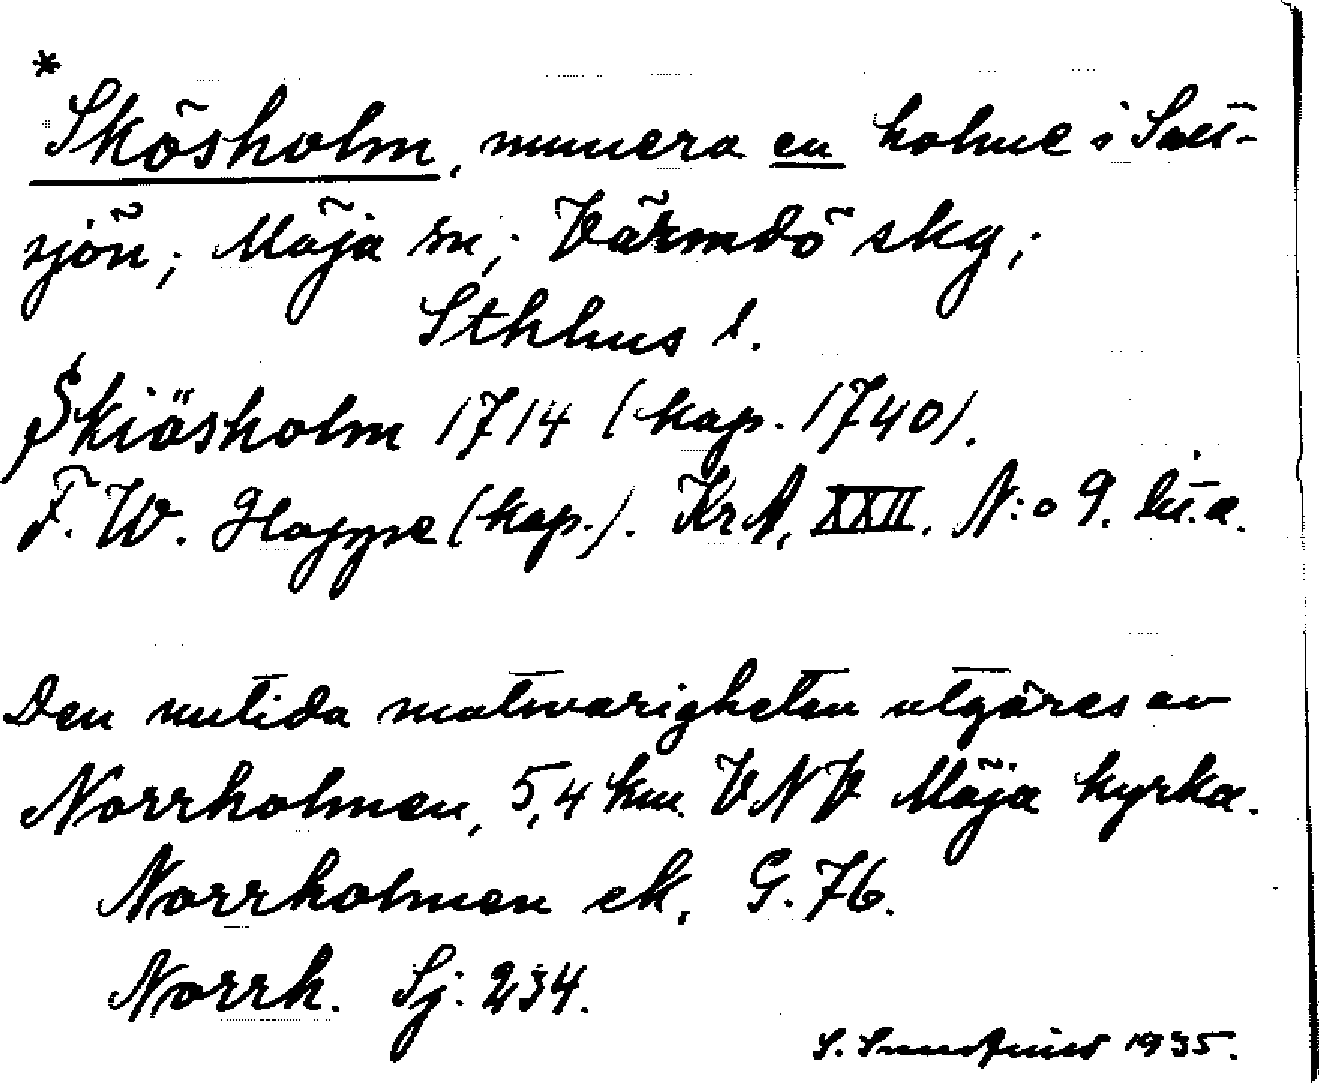 *
Skösholm, numera en holme i Salt-
sjön; Möja sn; Värmdö skg;
Sthlms l.
Skiösholm 1714 (kop. 1740).
F. W. Hoppe (kop.). KrA, XXII. N:o 9. lit. a.
Den nutida motsvarigheten utgöres av
Norrholmen, 5,4 km VNV Möja kyrka.
Norrholmen ek. G. 76.
Norrh. Sj: 234.
S. 1935.